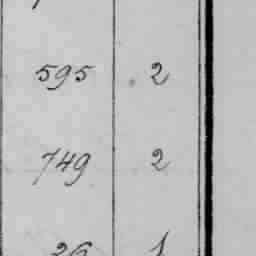 595 2
749 2
26 1